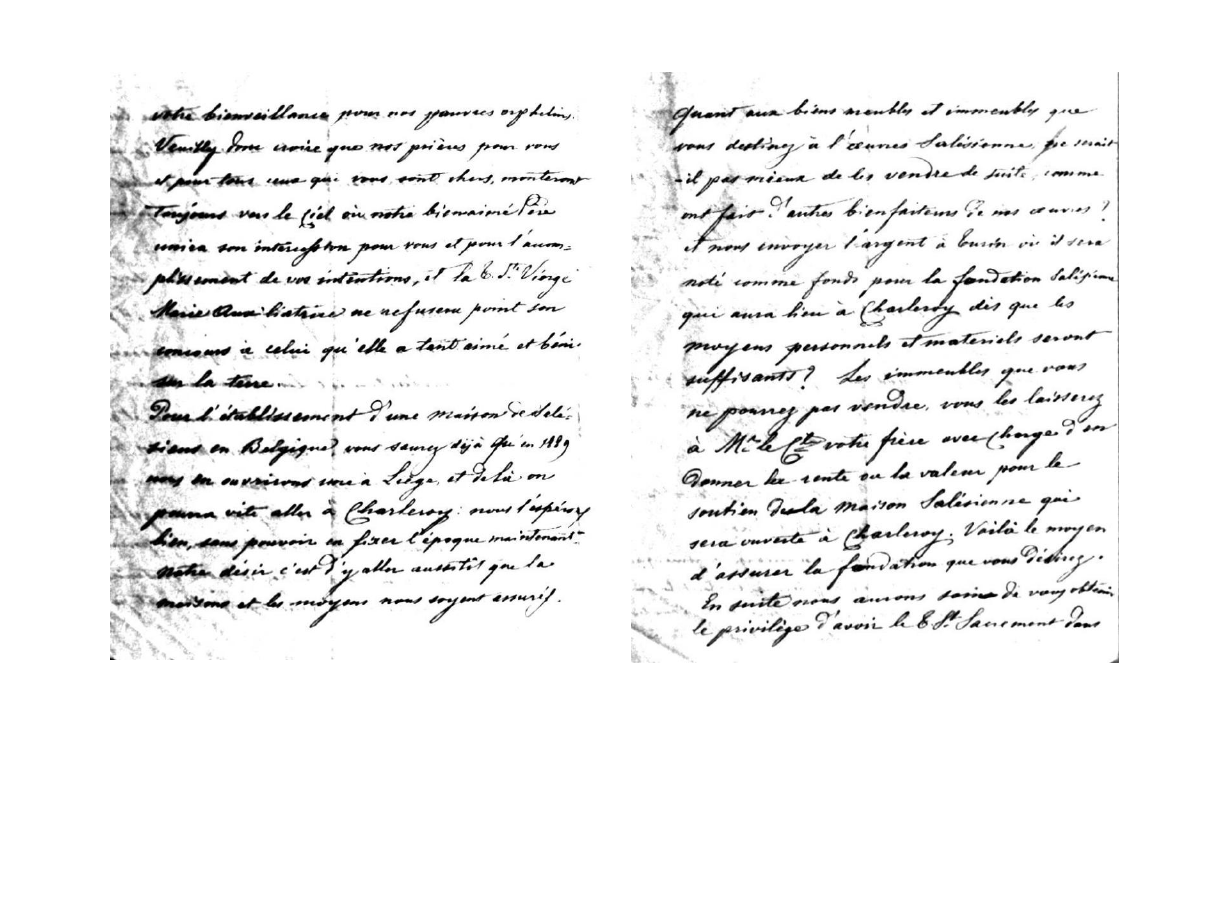 votre bienveillance pour nos pauvres orphelins.
Veuillez donc croire que nos prières pour vous
et pour tous ceux qui vous sont chers, monteront
toujours vers le Ciel où notre bienaimé Père
unira son intercession pour vous et pour l'accom=
plissement de vos intentions, et la T. Ste Vierge
Marie Auxiliatrice ne refusera point son
concours à celui qu'elle a tant aimé et béni
sur la terre
Pour l'établissement d'une maison de Salé-
siens en Belgique, vous saurez déjà qu'en 1889
nous en ouvrirons une à Liège, et de là on
pourra vite aller à Charleroy: nous l'espérons
bien, sans pouvoir en fixer l'époque maintenant
notre désir c'est d'y aller aussitôt que la
maisons et les moyens nous soyent assurés.
Quant aux biens meubles et immeubles que
vous destinez à l'œuvres Salésienne, ne serait
-il pas mieux de les vendre de suite, comme
ont fait d'autres bienfaiteurs de nos œuvres?
et nous envoyer l'argent à Turin où il sera
noté comme fonds pour la fondation Salésienne
qui aura lieu à Charleroy dès que les
moyens personnels et materiels seront
suffisants? Les immeubles que vous
ne pourrez pas vendre, vous les laisserez
à Mr. le Cte votre frère avec charge d'en
donner la rente ou la valeur pour le
soutien de la maison Salésienne qui
sera ouverte à Charleroy. Voilà le moyen
d'assurer la fondation que vous désirez.
En suite nous aurons soin de vous obtenir
le privilège d'avoir le T. St. Sacrement dans